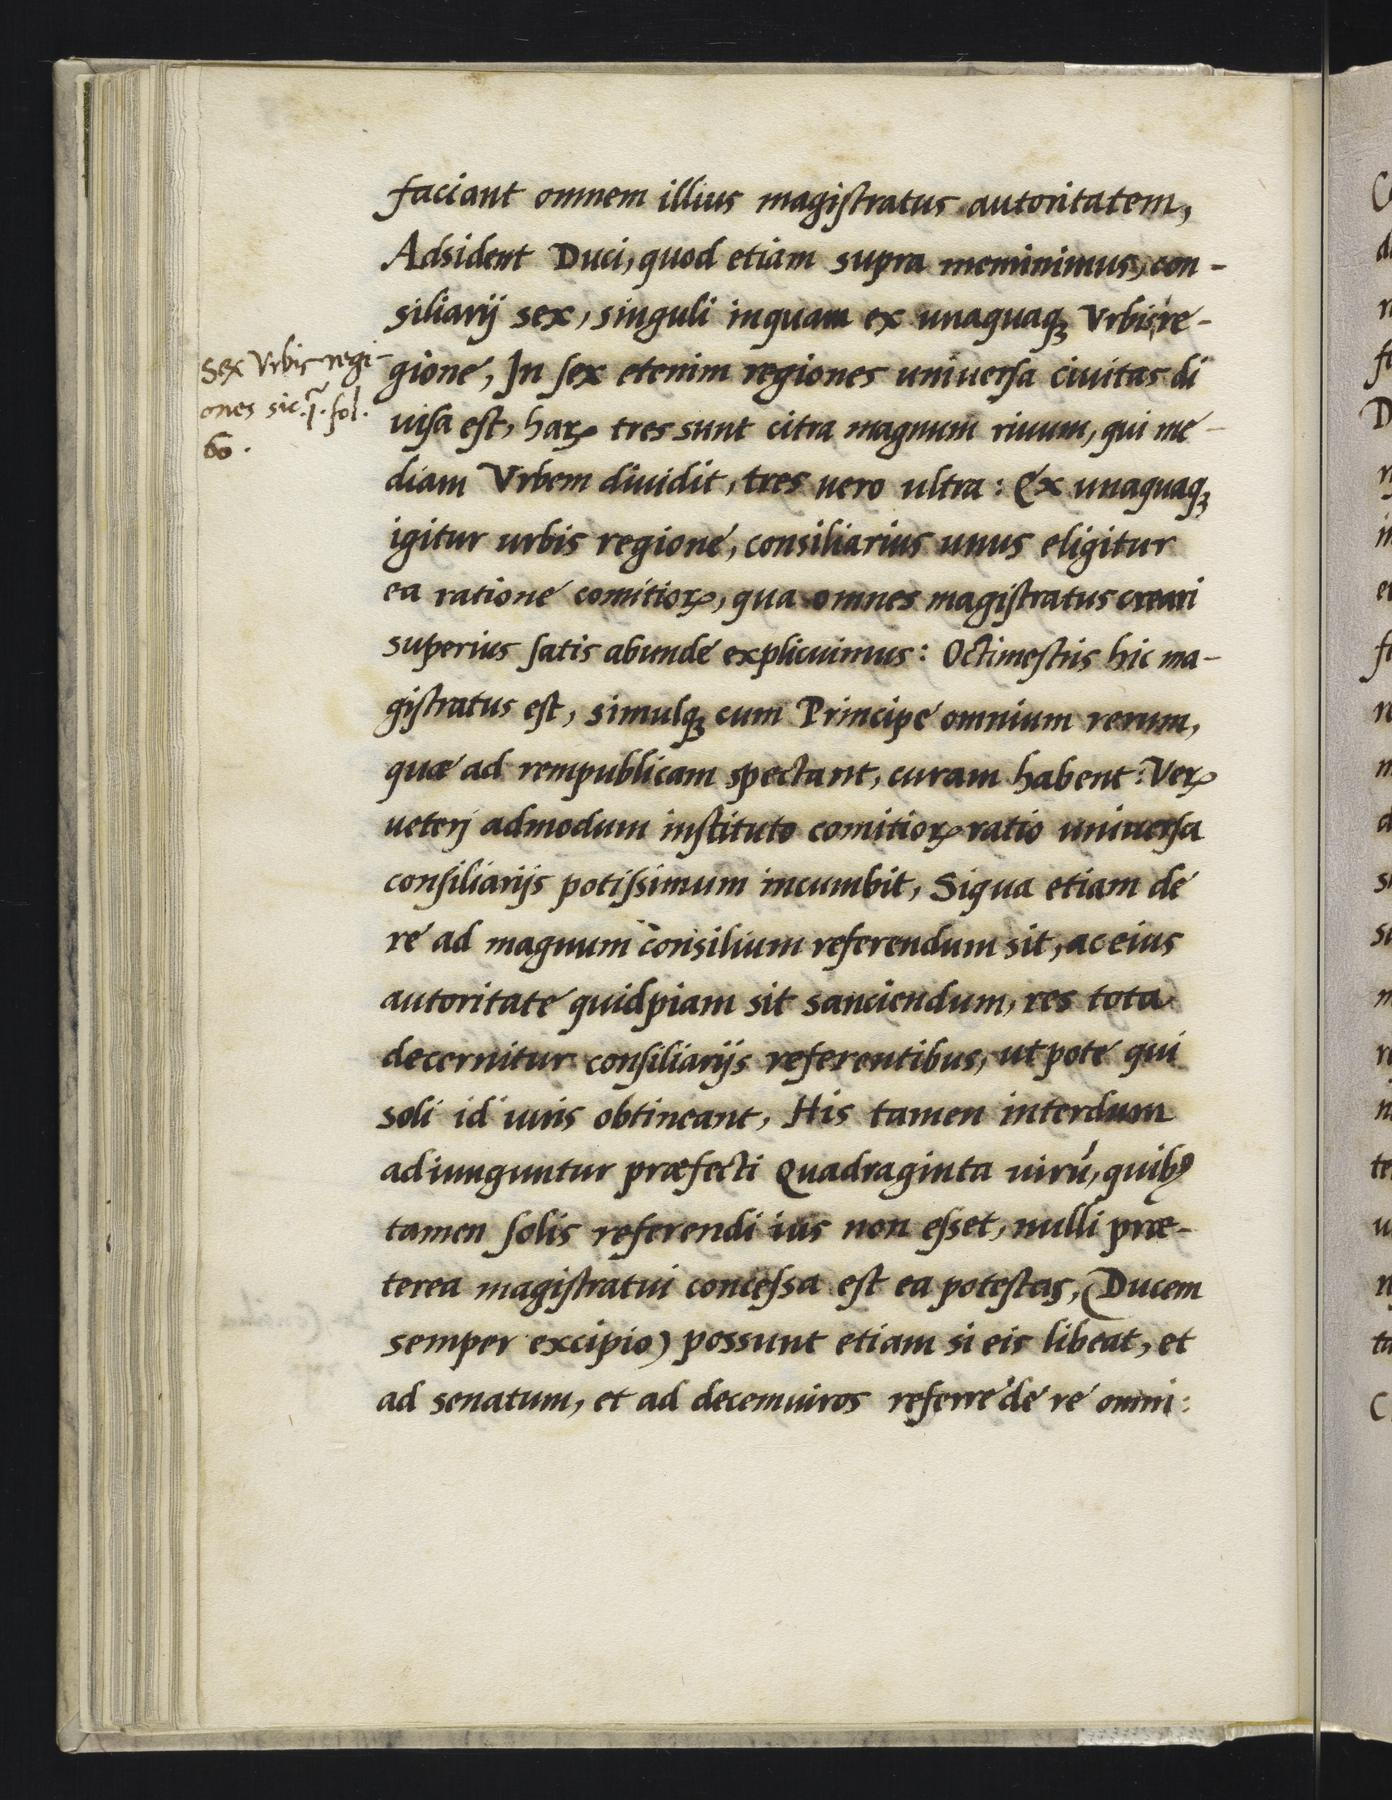 faciant omnem illius magiſtratus autoritatem,
Adsident Duci, quod etiam supra meminimus, con-
siliarij sex, singuli inquam ex unaquaqꝫ Vrbis re-
gione, In ſex etenim regiones univerſa civitas di
uiſa eſt, haꝝ tres sunt citra magnum riuum, qui me-
diam Vrbem diuidit, tres uero ultra: Ex unaquaqꝫ
igitur urbis regione, consiliarius unus eligitur
ea ratione comitioꝝ, qua omnes magiſtratus creari
superius ſatis abunde explicuimus: Octimeſtris hic ma-
giſtratus eſt, simulqꝫ cum Principe omnium rerum,
quæ ad rempublicam spectant, curam habent: Veꝝ
ueterj admodum inſtituto comitioꝝ ratio uniuerſa
conſiliarijs potiſsimum incumbit, Siqua etiam de
re ad magnum consilium referendum sit, ac eius
autoritate quidpiam sit sanciendum, res tota
decernitur conſiliarijs referentibus, utpote qui
soli id iuris obtineant, His tamen interdum
adiunguntur præfecti Quadraginta uirú, quibꝰ
tamen ſolis referendi ius non eſset, nulli præ-
terea magiſtratui conceſsa eſt ea poteſtas, (Ducem
semper excipio) possunt etiam si eis libeat, et
ad senatum, et ad decemuiros referre de re omni:
Sex Vrbis regi-
ones sic. fol.
60.